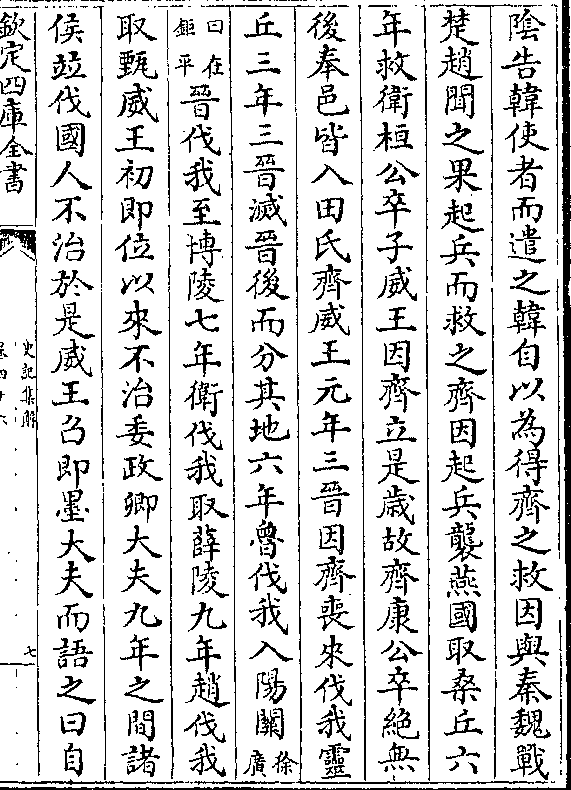 陰告韓使者而遣之韓自以為得齊之救因與秦魏戰
楚趙聞之果起兵而救之齊因起兵襲燕國取桑丘六
年救衛桓公卒子威王因齊立是歲故齊康公卒絕無
後奉邑皆入田氏齊威王元年三晉因齊喪來伐我靈
丘三年三晉滅晉後而分其地六年魯伐我入陽關徐廣
曰在鉅平晉伐我至博陵七年衛伐我取薛陵九年趙伐我
取甄威王初即位以來不治委政卿大夫九年之間諸
侯竝伐國人不治於是威王召即墨大夫而語之曰自
欽定四庫全書
史記集解
卷四十六
七